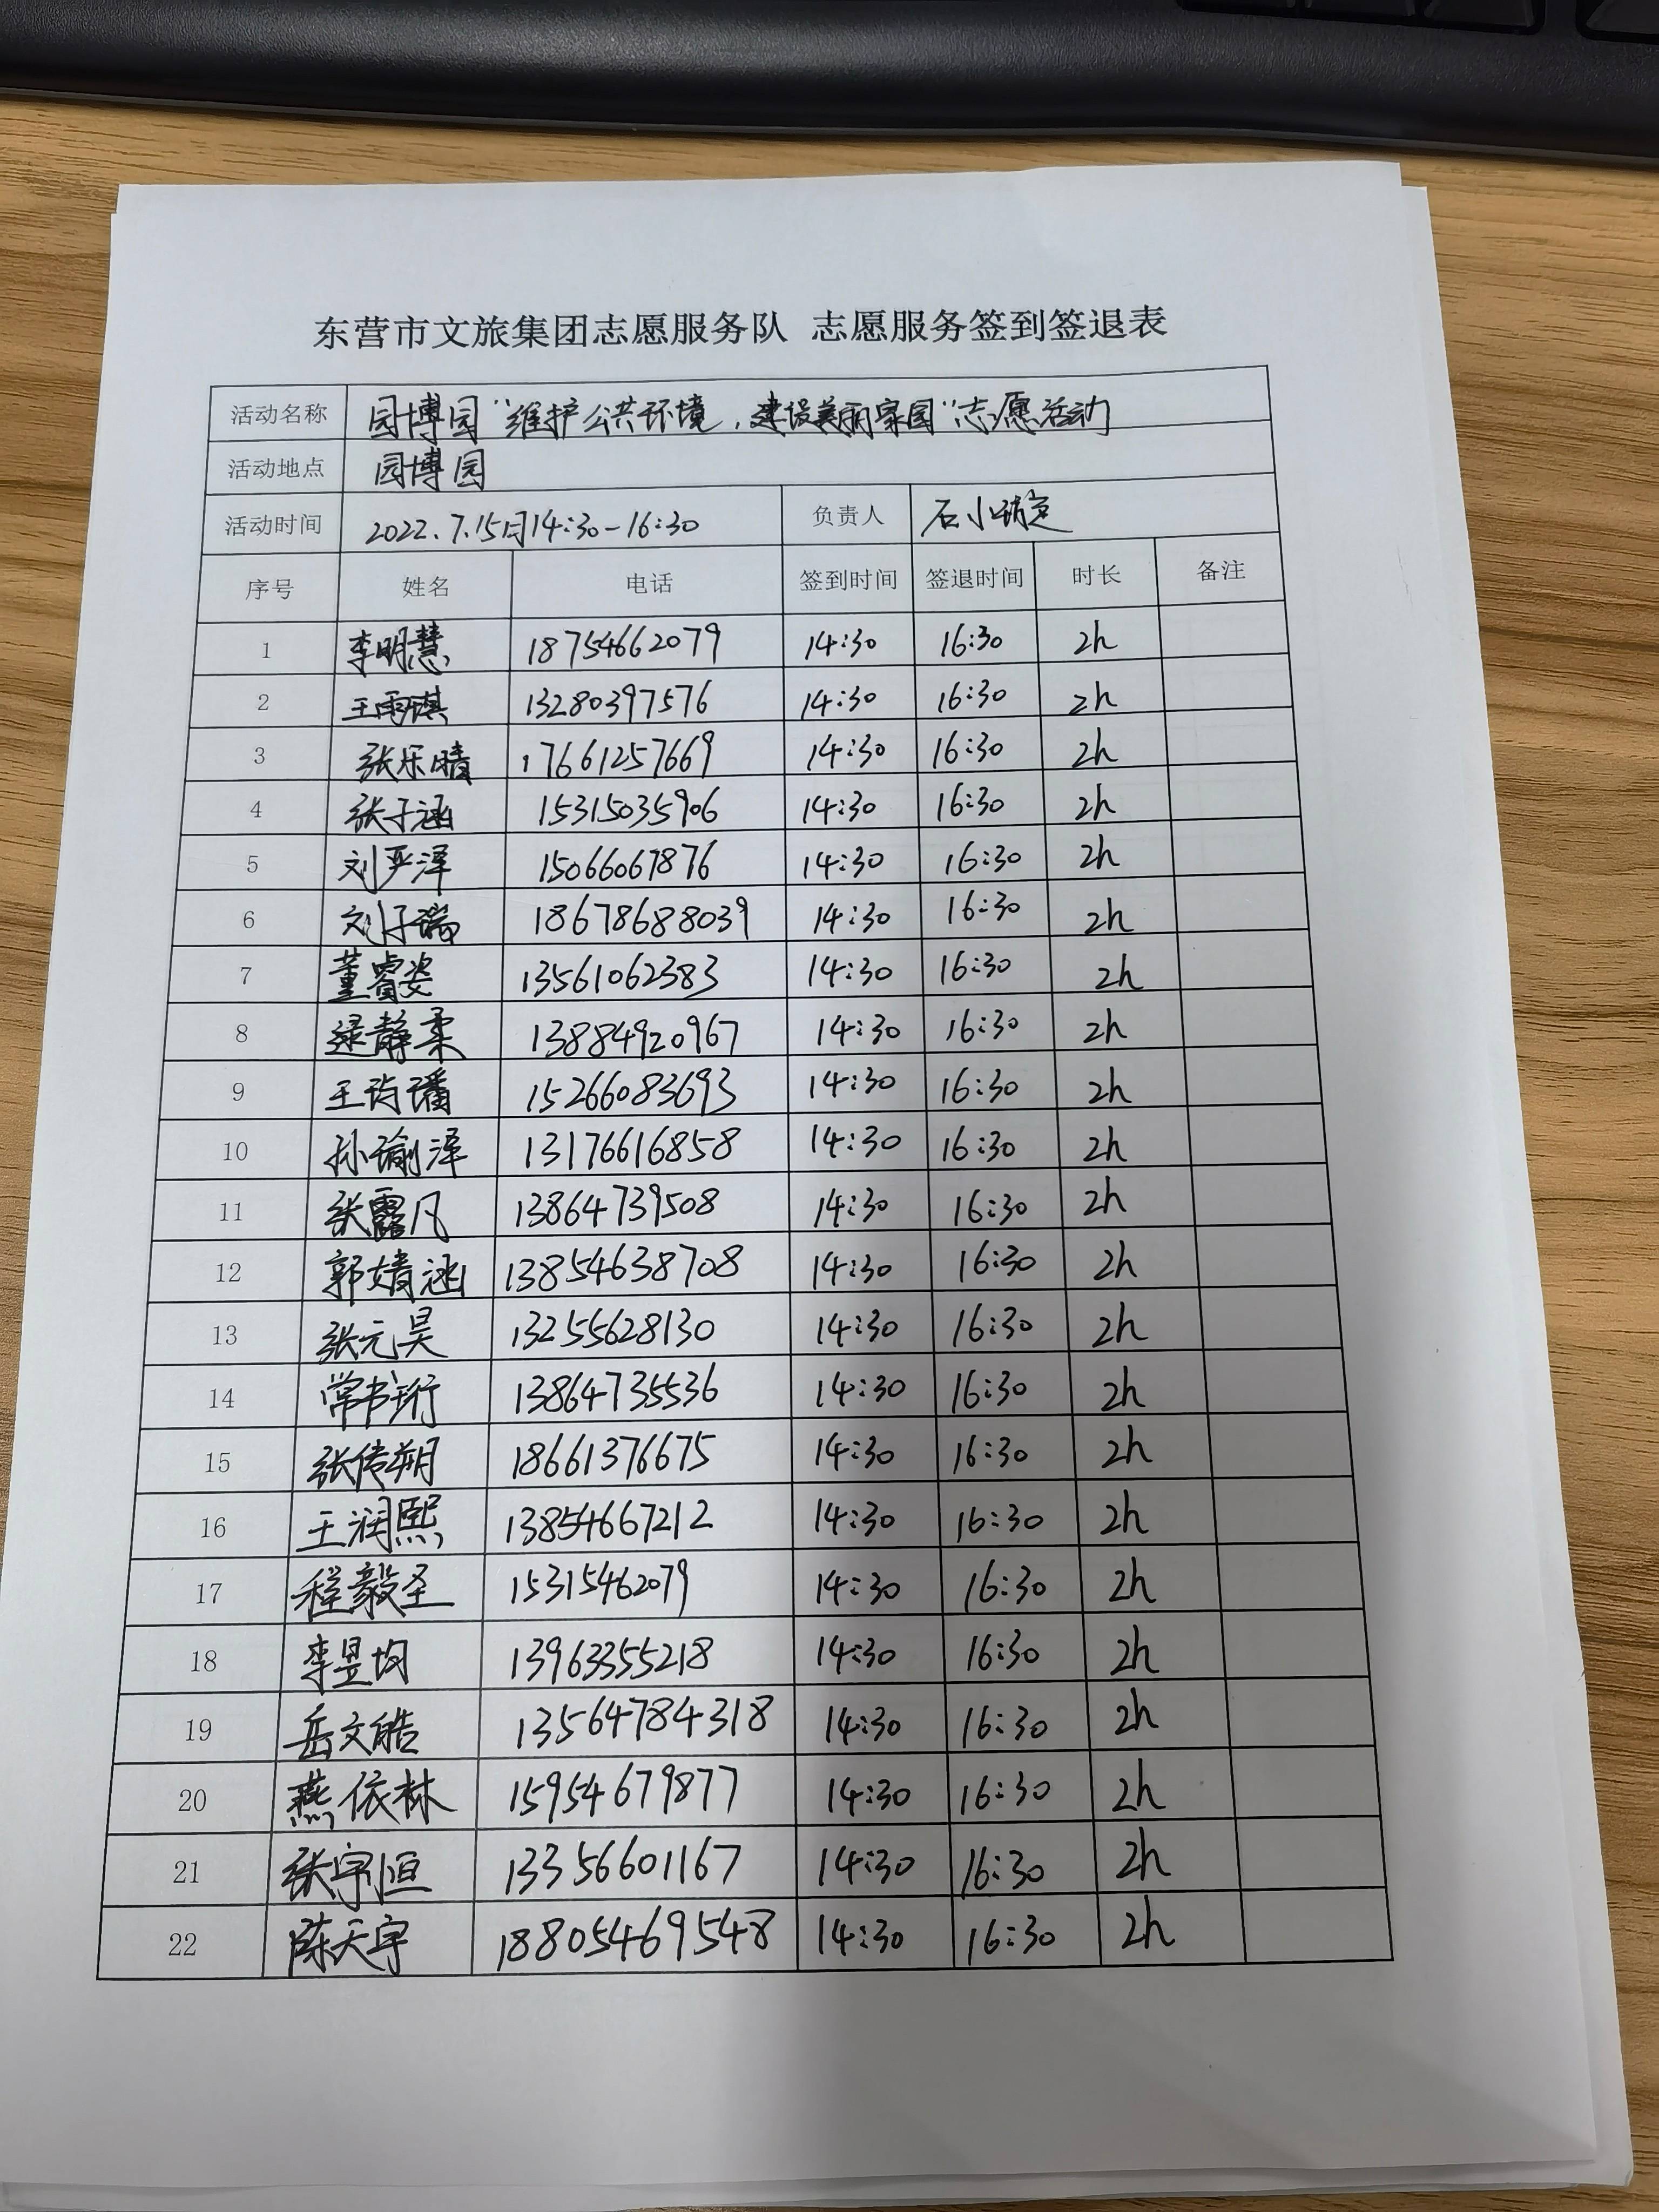 东营市文旅集团志愿服务队 志愿服务签到签退表
活动名称 园博园“维护公共环境，建设美丽家园”志愿活动
活动地点 园博园
活动时间 2022.7.15日14:30-16:30 负责人 石小
序号 姓名 电话 签到时间 签退时间 时长 备注
1 李明慧 18754662079 14:30 16:30 2h
2 王雨琪 13280397576 14:30 16:30 2h
3 张乐晴 17661257669 14:30 16:30 2h
4 张子涵 15315035906 14:30 16:30 2h
5 刘严泽 15066067876 14:30 16:30 2h
6 刘子瑞 18678688039 14:30 16:30 2h
7 董睿姿 13561062383 14:30 16:30 2h
8 逯静柔 13884920967 14:30 16:30 2h
9 王玓璠 15266083693 14:30 16:30 2h
10 孙瑜泽 13176616858 14:30 16:30 2h
11 张露凡 13864739508 14:30 16:30 2h
12 郭婧涵 13854638708 14:30 16:30 2h
13 张元昊 13255628130 14:30 16:30 2h
14 常书珩 13864735536 14:30 16:30 2h
15 张传朔 18661376675 14:30 16:30 2h
16 王润熙 13854667212 14:30 16:30 2h
17 程毅圣 15315462079 14:30 16:30 2h
18 李昱均 13963355218 14:30 16:30 2h
19 岳文皓 13564784318 14:30 16:30 2h
20 燕依林 15954679877 14:30 16:30 2h
21 张宇恒 13356601167 14:30 16:30 2h
22 陈天宇 18805469548 14:30 16:30 2h